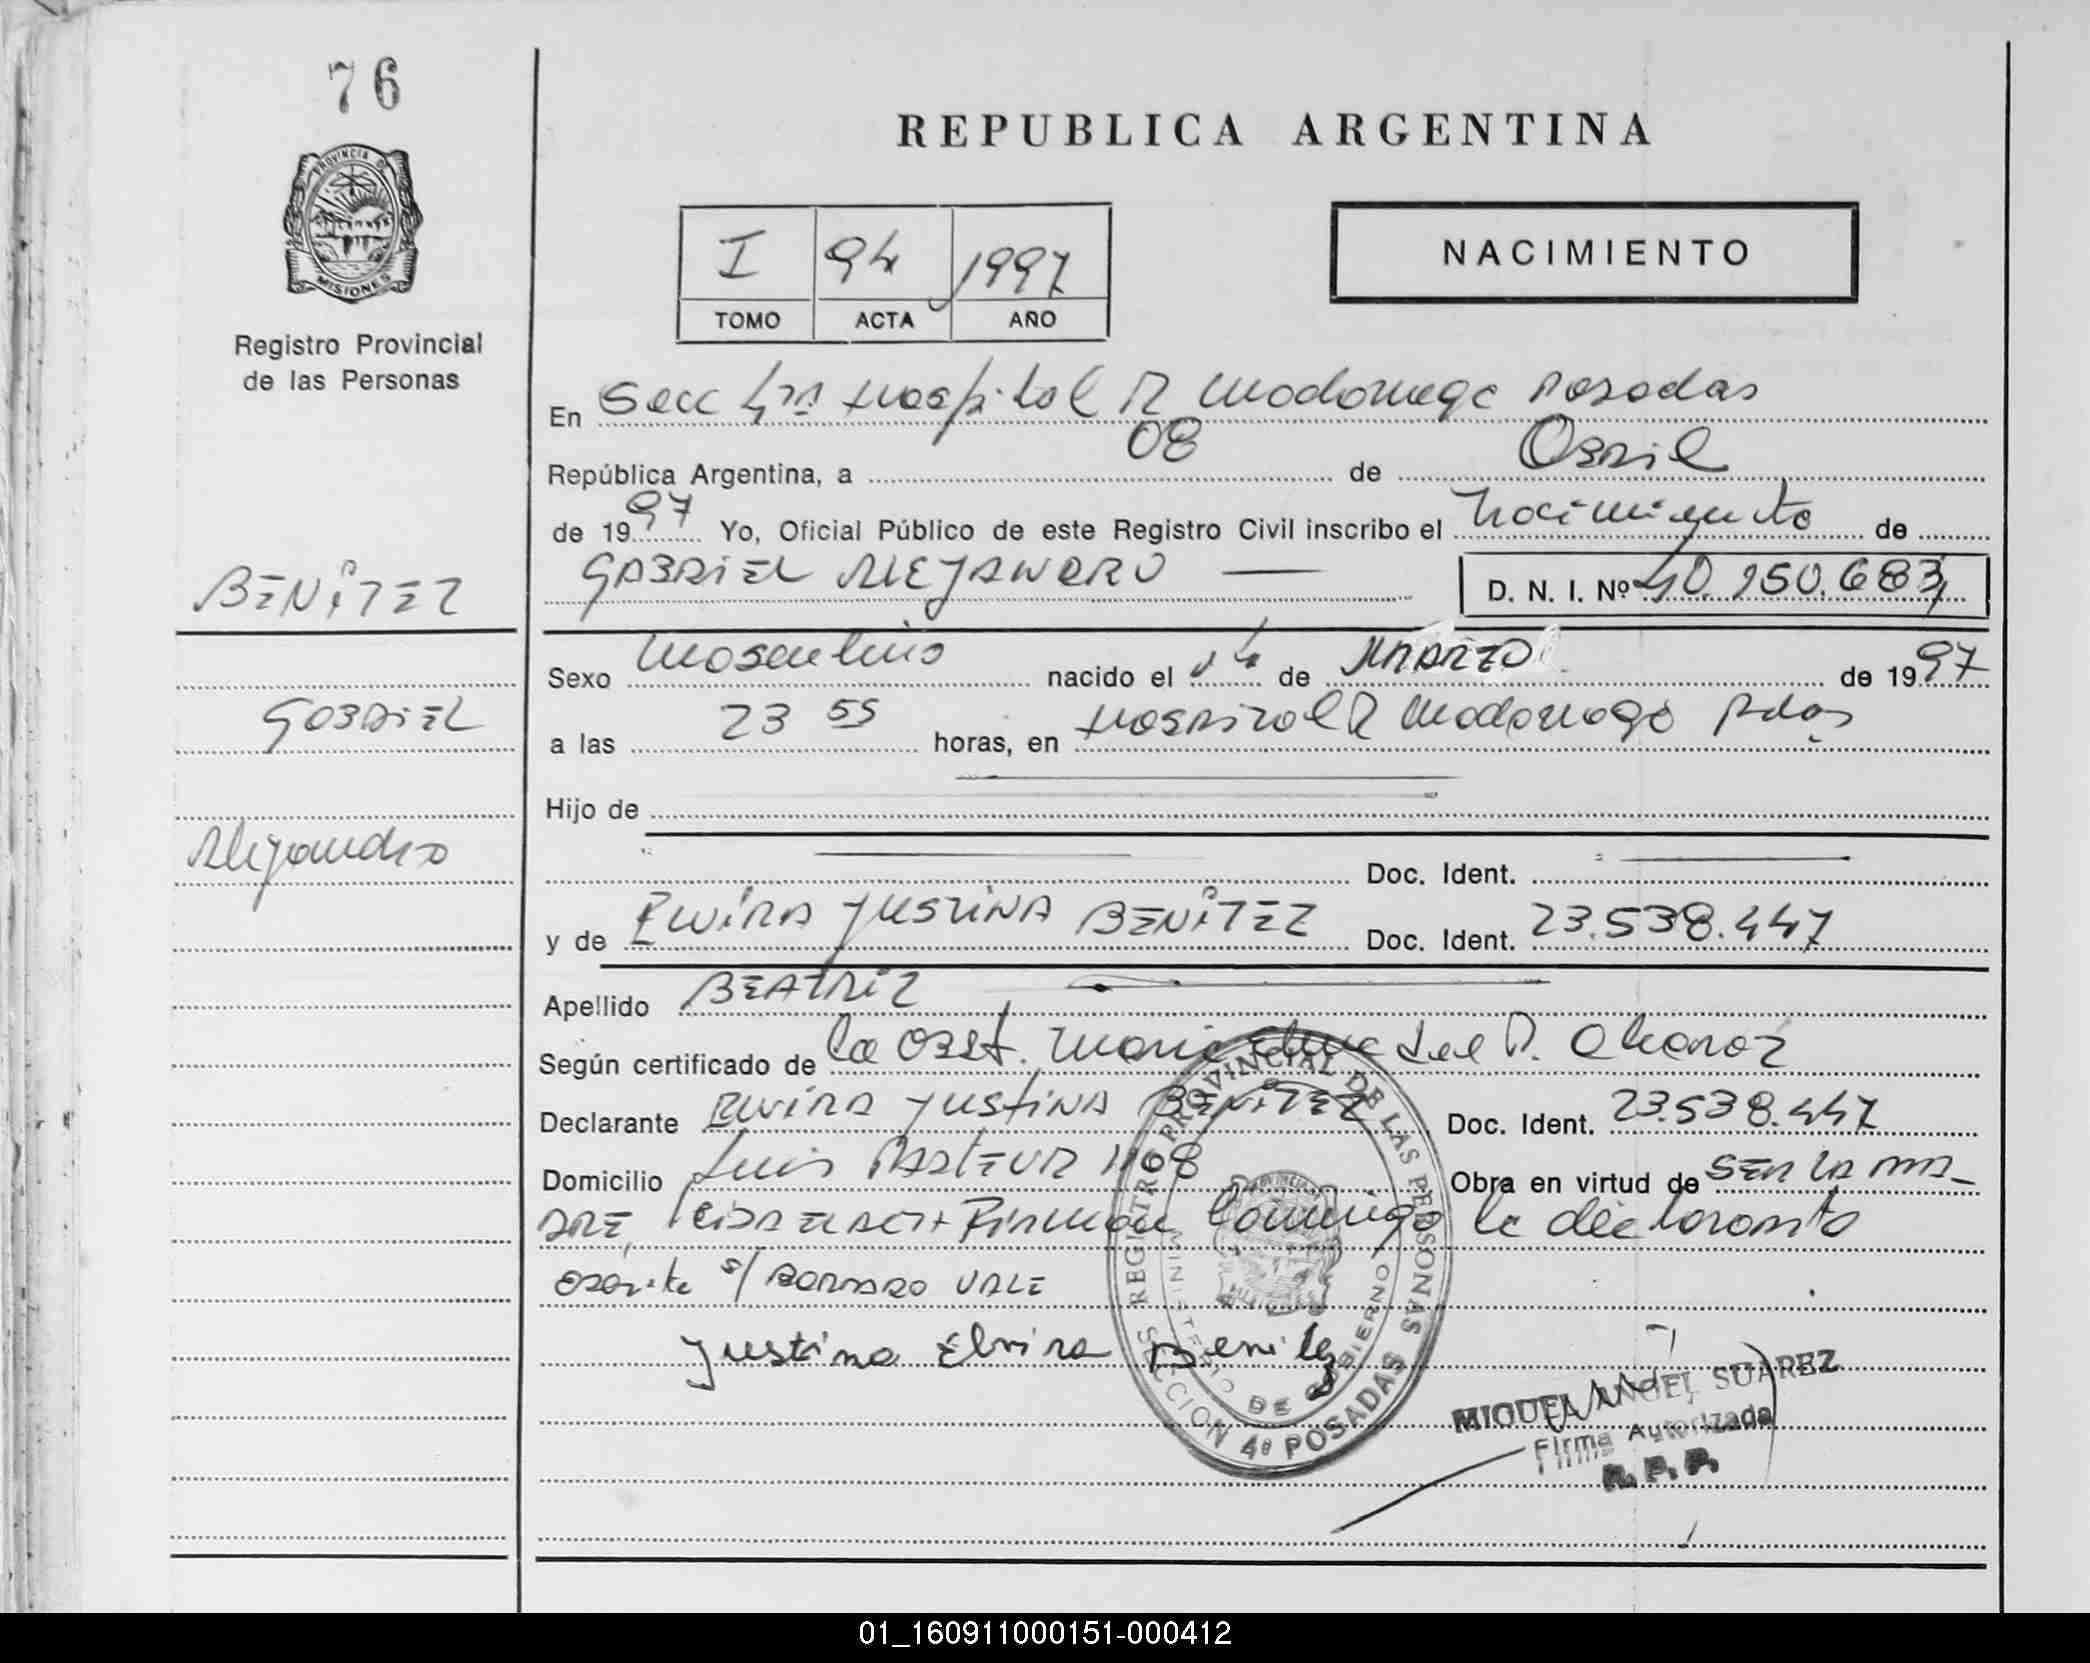 76
PROVINCIA DE
MISIONES
Registro Provincial
de las Personas
REPUBLICA ARGENTINA
I 94 1997
TOMO ACTA AÑO
NACIMIENTO
En Secc 4ta Hospital R Madariaga Posadas
República Argentina, a 08 de Abril
de 1997 Yo, Oficial Público de este Registro Civil inscribo el Nacimiento de
BENÍTEZ
GABRIEL ALEJANDRO
D. N. I. Nº 40.150.683
Sexo Masculino nacido el 14 de MARZO de 1997
GABRIEL
a las 23 55 horas, en Hospital R Madariaga Pdas
Hijo de
Alejandro
Doc. Ident.
y de ELVIRA JUSTINA BENÍTEZ Doc. Ident. 23.538.447
Apellido BEATRIZ
Según certificado de la Obst. Maria del R.
Declarante ELVIRA JUSTINA BENÍTEZ Doc. Ident. 23.538.447
Domicilio Luis PASTEUR 1168 Obra en virtud de SER LA MA-
DRE, LEIDA EL ACTA FIRMAN conmigo la declarante
s/ BORRADO VALE
Justina Elvira Benitez
REGISTRO PROVINCIAL DE LAS PERSONAS
MINISTERIO DE GOBIERNO
SECCION 4ª POSADAS
MIGUEL ANGEL SUAREZ
Firma Autorizada
R. P. P.
01_160911000151-000412